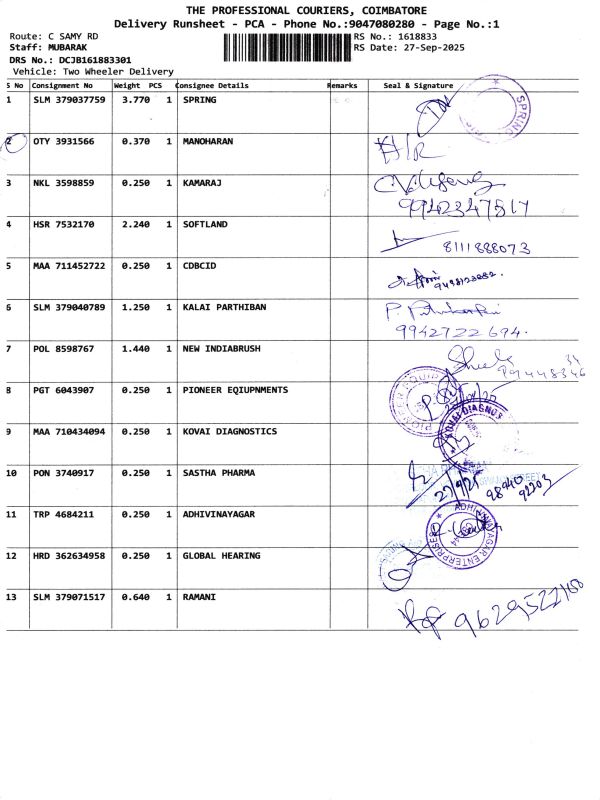 THE PROFESSIONAL COURIERS, COIMBATORE
Delivery Runsheet - PCA - Phone No.:9047080280 - Page No.:1
Route: C SAMY RD RS No.: 1618833
Staff: MUBARAK RS Date: 27-Sep-2025
DRS No.: DCJB161883301
Vehicle: Two Wheeler Delivery
S No Consignment No Weight PCS Consignee Details Remarks Seal & Signature
1 SLM 379037759 3.770 1 SPRING SPRING
2 OTY 3931566 0.370 1 MANOHARAN H/R
3 NKL 3598859 0.250 1 KAMARAJ
9942347517
4 HSR 7532170 2.240 1 SOFTLAND 8111888073
5 MAA 711452722 0.250 1 CDBCID
6 SLM 379040789 1.250 1 KALAI PARTHIBAN
9942722694.
7 POL 8598767 1.440 1 NEW INDIABRUSH
8 PGT 6043907 0.250 1 PIONEER EQIUPNMENTS PIONEER EQUIP
9 MAA 710434094 0.250 1 KOVAI DIAGNOSTICS KOVAI DIAGNOS
10 PON 3740917 0.250 1 SASTHA PHARMA 27/9/25 98940 92203
11 TRP 4684211 0.250 1 ADHIVINAYAGAR ADHIVINAYAGAR ENTERPRISES
12 HRD 362634958 0.250 1 GLOBAL HEARING
13 SLM 379071517 0.640 1 RAMANI